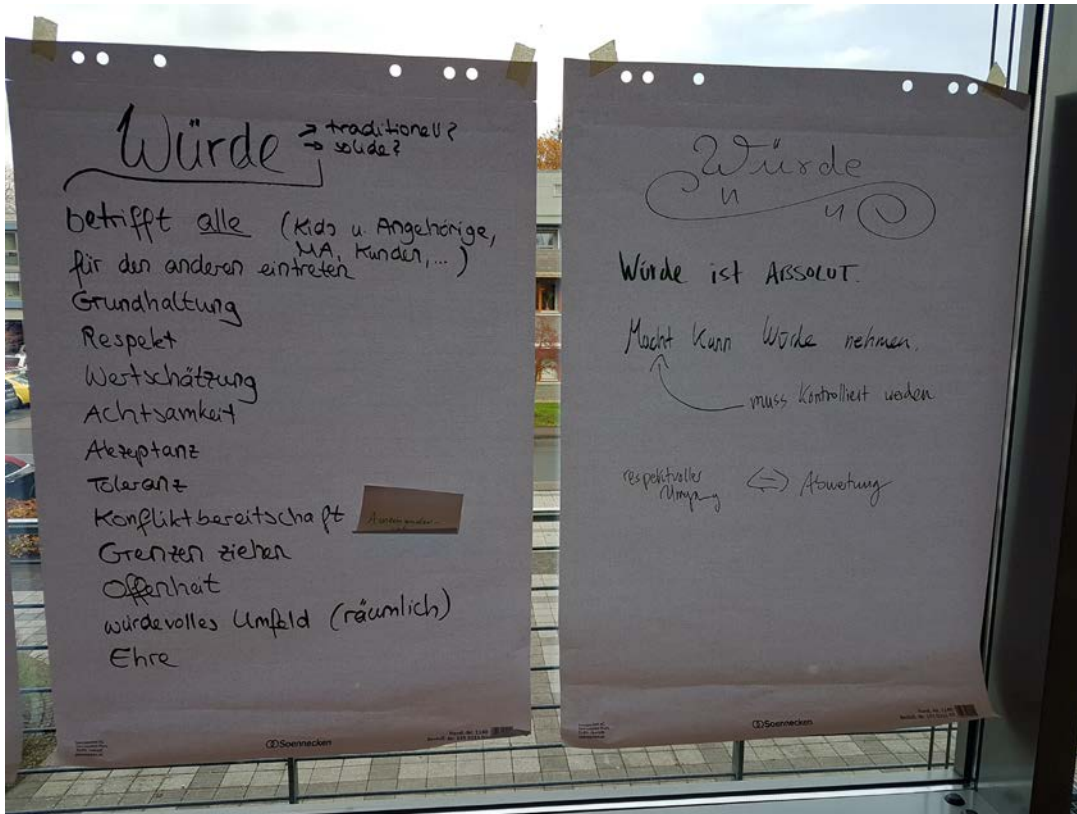 Würde → traditionell?
→ solide?
betrifft alle (Kids u. Angehörige,
MA, Kunden, ...)
für den anderen eintreten
Grundhaltung
Respekt
Wertschätzung
Achtsamkeit
Akzeptanz
Toleranz
Konfliktbereitschaft
Grenzen ziehen
Offenheit
würdevolles Umfeld (räumlich)
Ehre
Soennecken
Würde
Würde ist ABSOLUT.
Macht kann Würde nehmen.
muss kontrolliert werden
respektvoller
Umgang ⇔ Abwertung
Soennecken